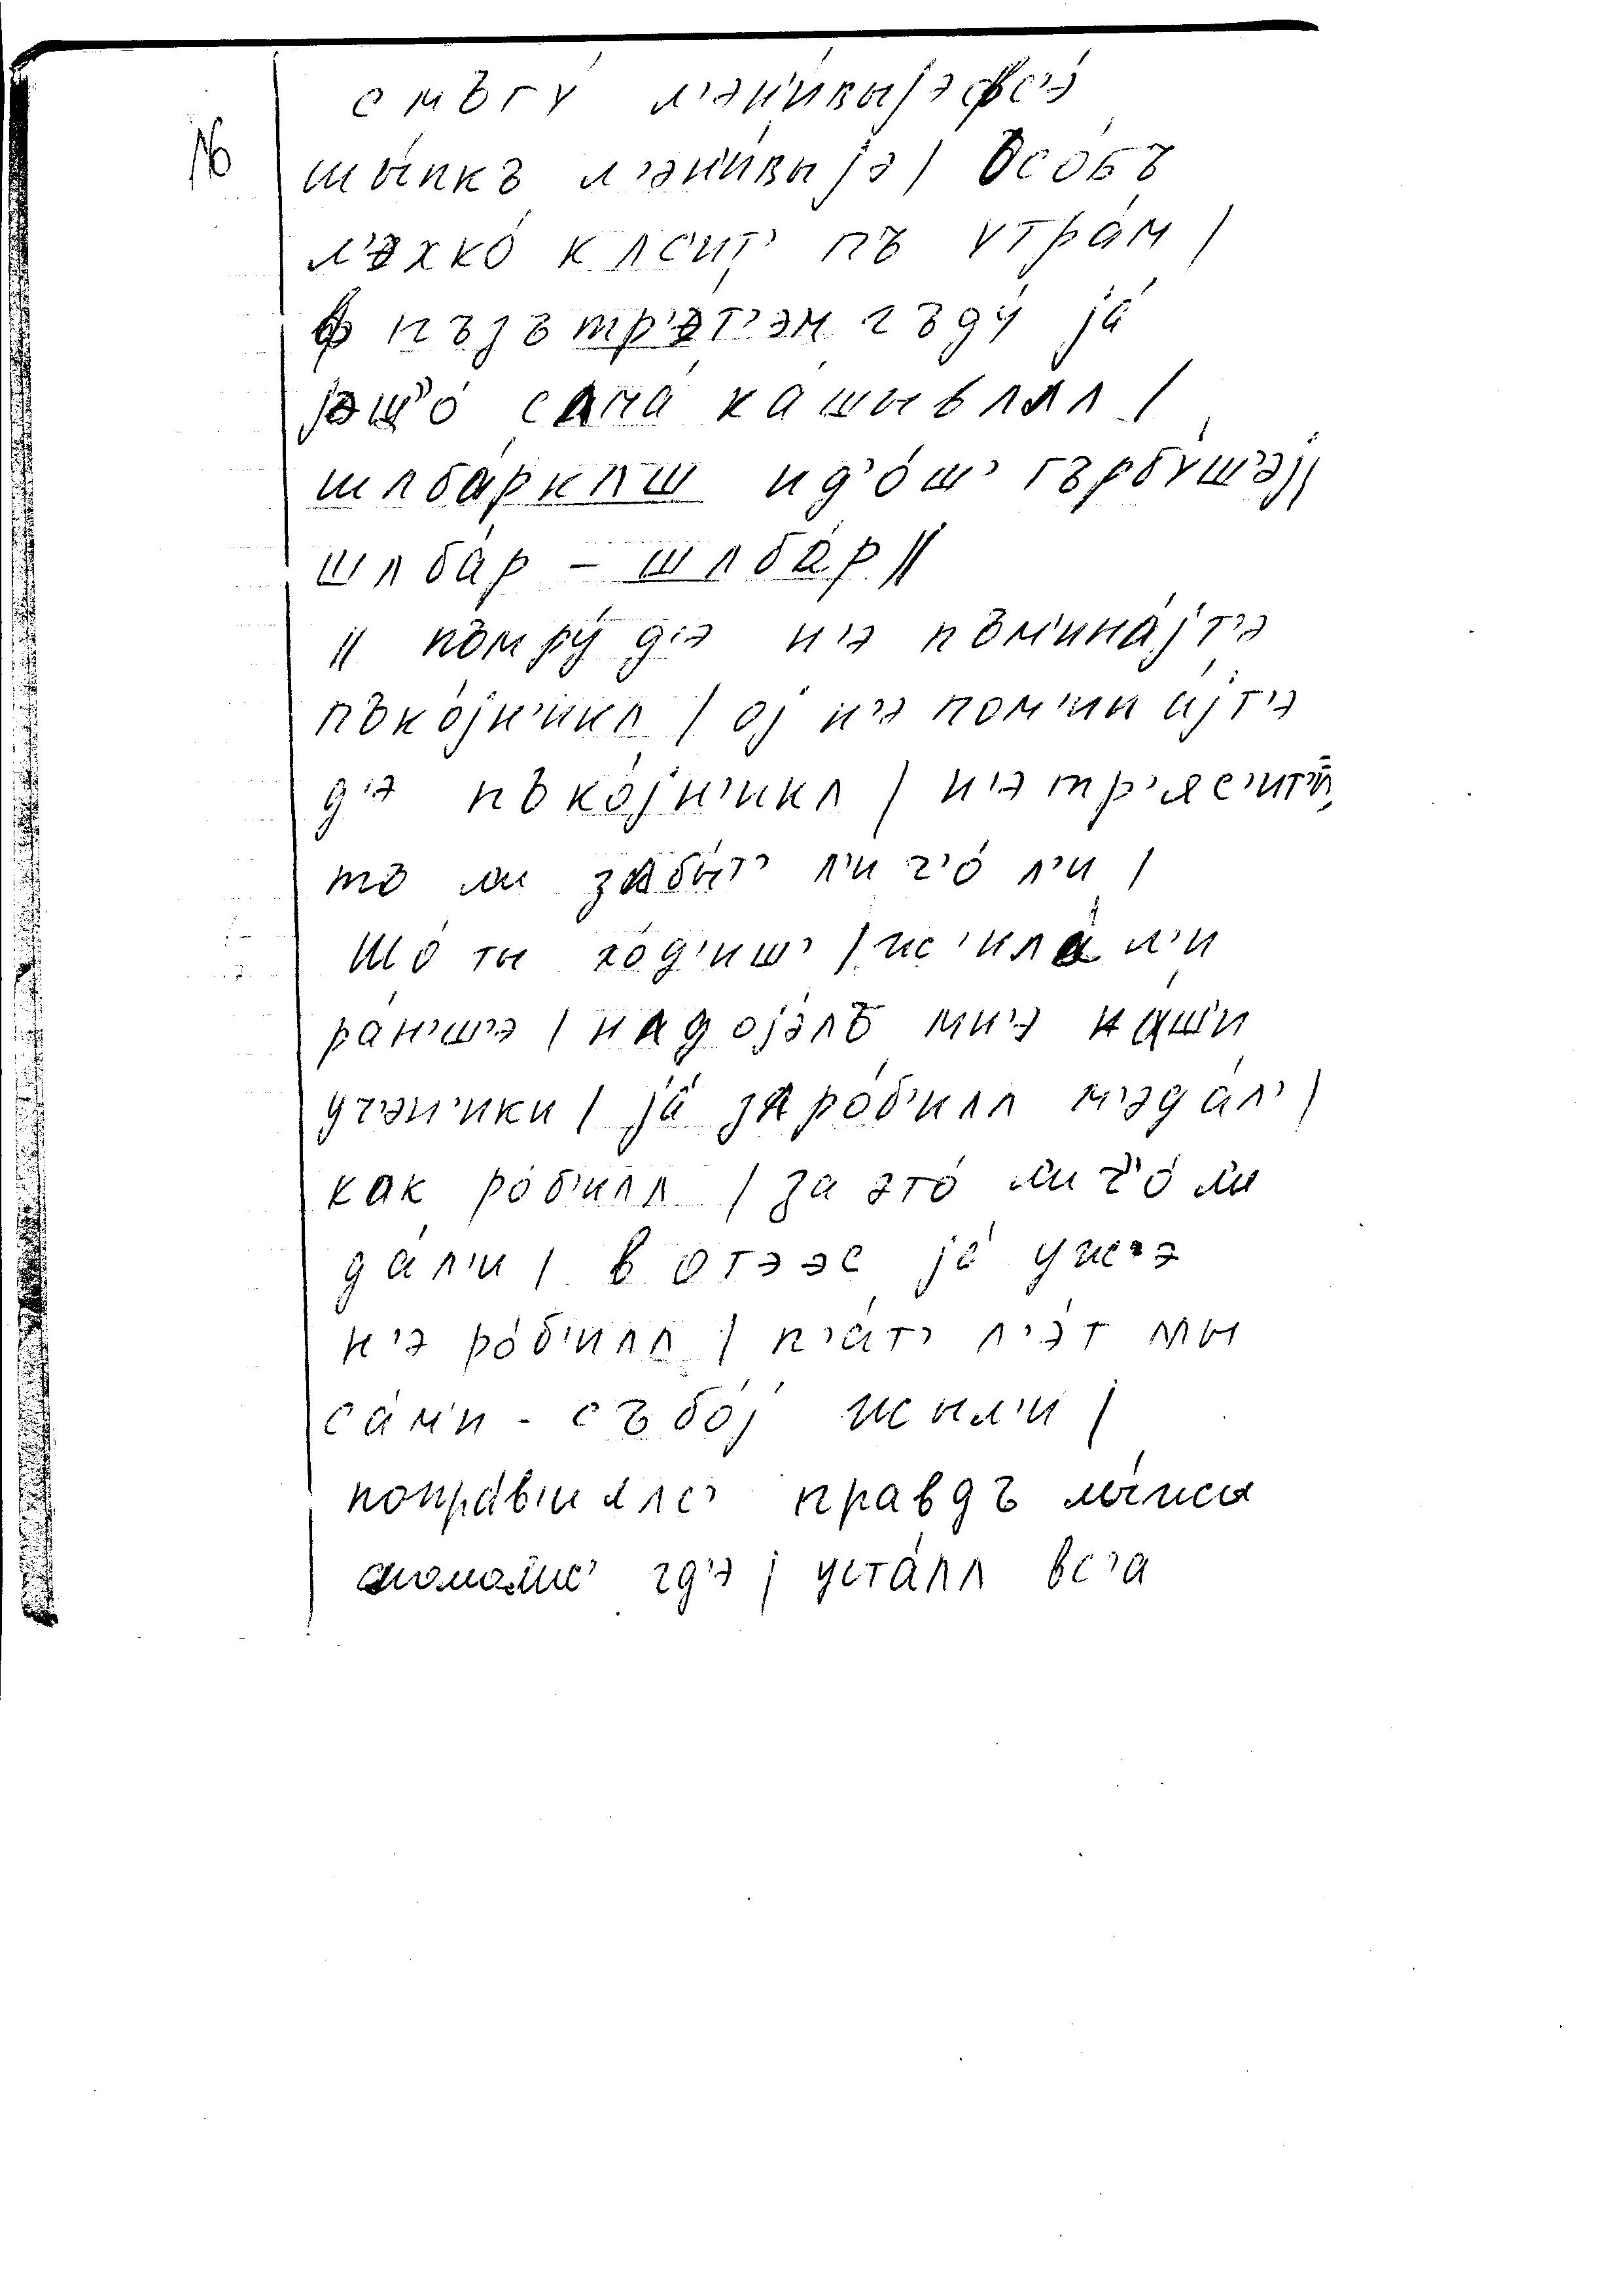 смъгу́ л'эн'и́выjэ фс'э́
№ шы́пкъ л'эн'и́выjэ | Осо́бъ
л'эхко́ кʌс'ит' пъ утра́м |
ф пъзътр'э́т'эм гъду́ jа́
jэш'о́ сʌма́ ка́шывʌлʌ |
шʌба́ркʌш ид'о́ш' гърбу́ш'эj ||
шʌба́р – шʌба́р ||
|| помру́ д'э н'э пъм'ина́jт'э
пъко́jн'икʌ | оj н'э пом'ина́jт'э
д'э пъко́jн'икʌ | н'э тр'яс'ит'
то ли зʌбы́т' л'и ч'о́ л'и |
Шо́ ты хо́д'иш' | жс'ила́ л'и
ра́н'ш'э | нʌдоjэлъ мн'э на́ш'и
уч'эн'ики | jа́ зʌро́б'илʌ м'эда́л' |
как ро́б'илʌ | за это́ ли ч'о́ ли
да́л'и | в отээс jа́ уж'э
н'э ро́б'илʌ | п'а́т' л'э́т мы
са́м'и - събо́j жыл'и |
попра́в'илʌс' правдъ лы́жы
сломались гд'э | уста́лʌ вс'а